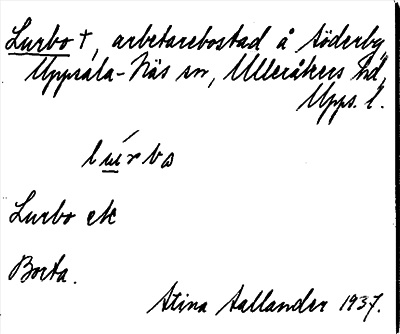 Lurbo †, arbetarebostad å Söderby,
Uppsala-Näs sn, Ulleråkers hd,
Upps. l.
lu̱ŕbo
Lurbo ek
Borta.
Stina Sallander 1937.